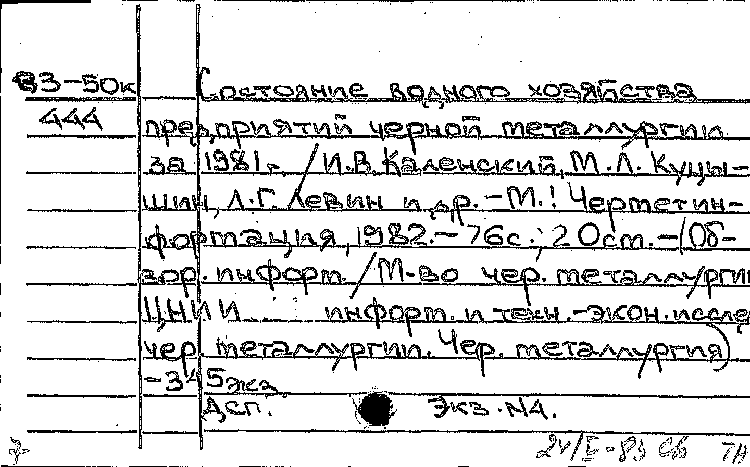 83-50к Состояние водного хозяйства
444 предприятий черной металлургии
за 1981г. / И.В. Каленский, М.Л. Куцы-
шин, Л.Г. Левин и др. - М.: Черметин-
формация, 1982. - 76с.; 20см. - (Об-
зор. информ. / М-во чер. металлургии
ЦНИИ информ. и техн.-экон. исслед
чер. металлургии. Чер. металлургия)
- 345экз.
Дсп. Экз. №4.
24/I-83